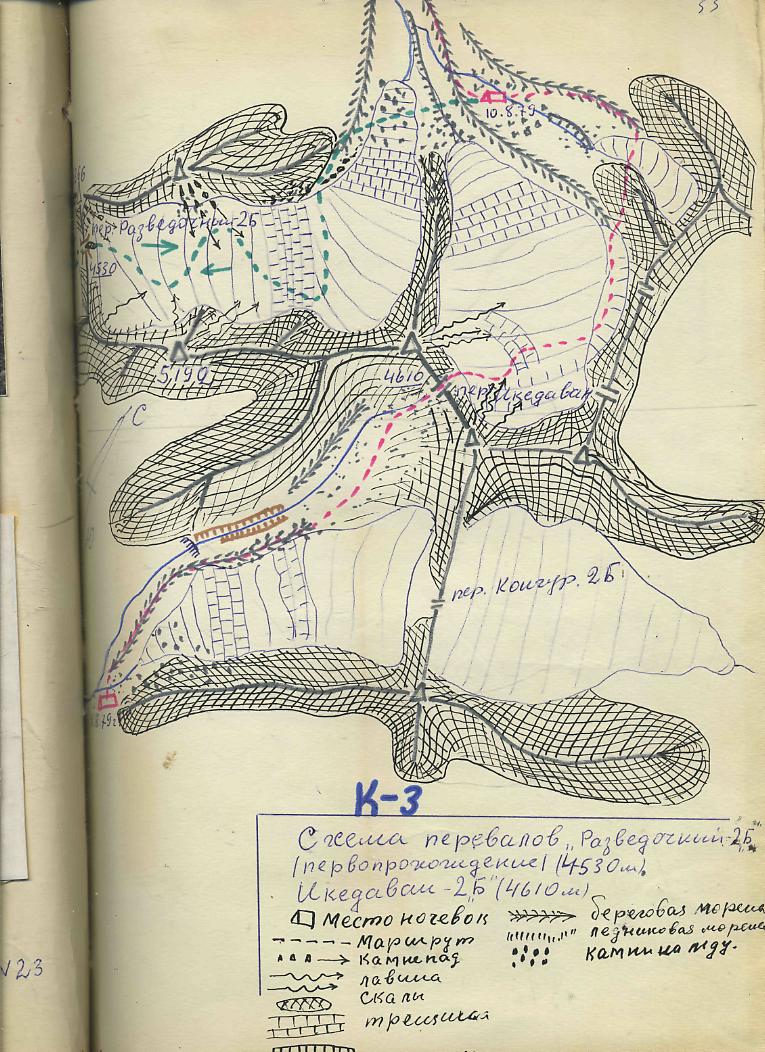 53
10.8.79
пер. Разведочный 2Б
4530
5190
4610
пер. Икедаван
С
пер. Контур. 2Б
8.79г
К-3
Схема перевалов "Разведочный-2Б"
/первопрохождение/ (4530м),
Икедаван-2Б" (4610м)
Место ночевок
Маршрут
Камнепад
лавина
Скалы
трещины
береговая морена
ледниковая морена
камни на льду.
№23